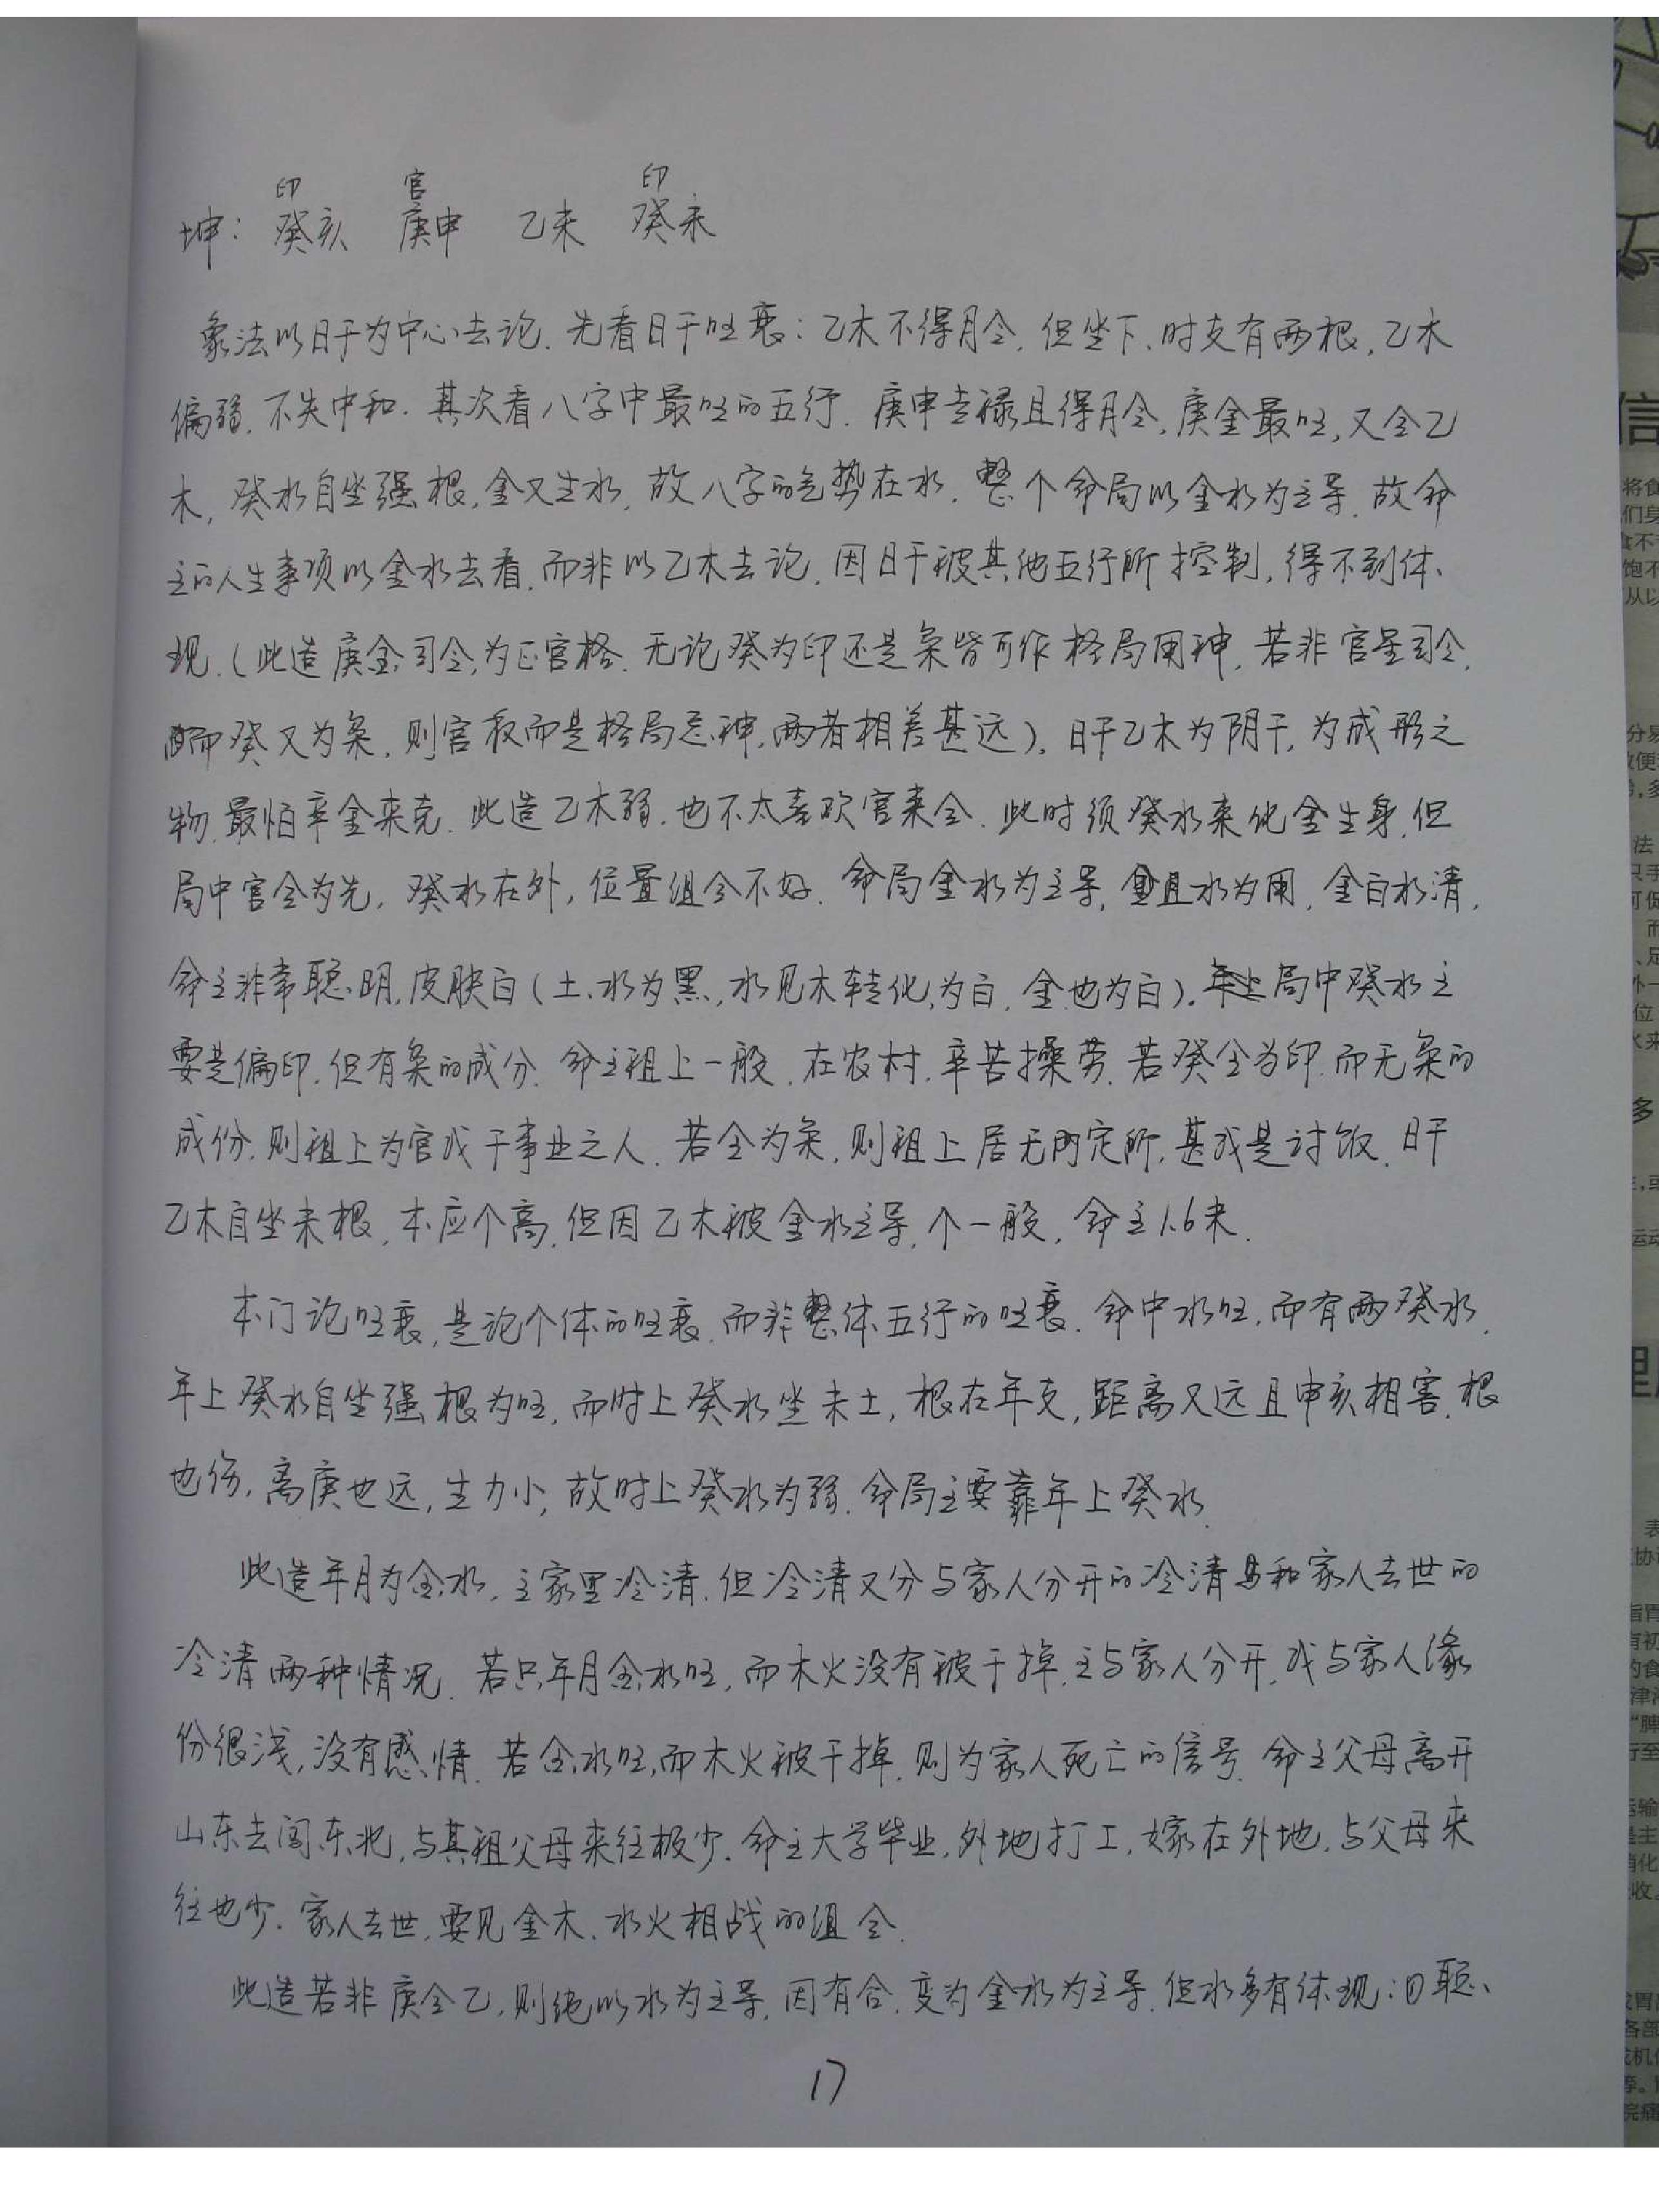 印 官 印
坤：癸亥 庚申 乙未 癸未
象法以日干为中心去论．先看日干旺衰：乙木不得月令．但坐下、时支有两根，乙木
偏弱．不失中和．其次看八字中最旺的五行．庚申专禄且得月令，庚金最旺，又合乙
木，癸水自坐强根，金又生水，故八字的气势在水．整个命局以金水为主导．故命
主的人生事项以金水去看．而非以乙木去论．因日干被其他五行所控制，得不到体
现．（此造庚金司令，为正官格．无论癸为印还是枭皆可作格局用神．若非官星司令，
而癸又为枭，则官杀而是格局忌神，两者相差甚远）．日干乙木为阴干，为成形之
物．最怕辛金来克．此造乙木弱．也不太喜欢官来合．此时须癸水来化金生身．但
局中官合为先，癸水在外，位置组合不好．命局金水为主导，且水为用，金白水清，
命主非常聪明，皮肤白（土、水为黑，水见木转化，为白，金也为白）．局中癸水主
要是偏印．但有枭的成分．命主祖上一般．在农村．辛苦操劳．若癸全为印．而无枭的
成份．则祖上为官或干事业之人．若全为枭，则祖上居无定所，甚或是讨饭．日干
乙木自坐未根，本应个高，但因乙木被金水主导，个一般，命主1.6米．
本门论旺衰，是论个体的旺衰，而非整体五行的旺衰．命中水旺．而有两癸水．
年上癸水自坐强根为旺，而时上癸水坐未土，根在年支，距离又远且申亥相害．根
也伤，离庚也远，生力小，故时上癸水为弱．命局主要靠年上癸水．
此造年月为金水，主家里冷清．但冷清又分与家人分开的冷清和家人去世的
冷清两种情况．若只年月金水旺，而木火没有被干掉，主与家人分开，或与家人缘
份很浅，没有感情．若金水旺，而木火被干掉．则为家人死亡的信号．命主父母离开
山东去闯东北，与其祖父母来往极少．命主大学毕业，外地打工，嫁在外地，与父母来
往也少．家人去世，要见金木、水火相战的组合．
此造若非庚合乙，则纯以水为主导，因有合．变为金水为主导．但水多有体现：①聪、
17